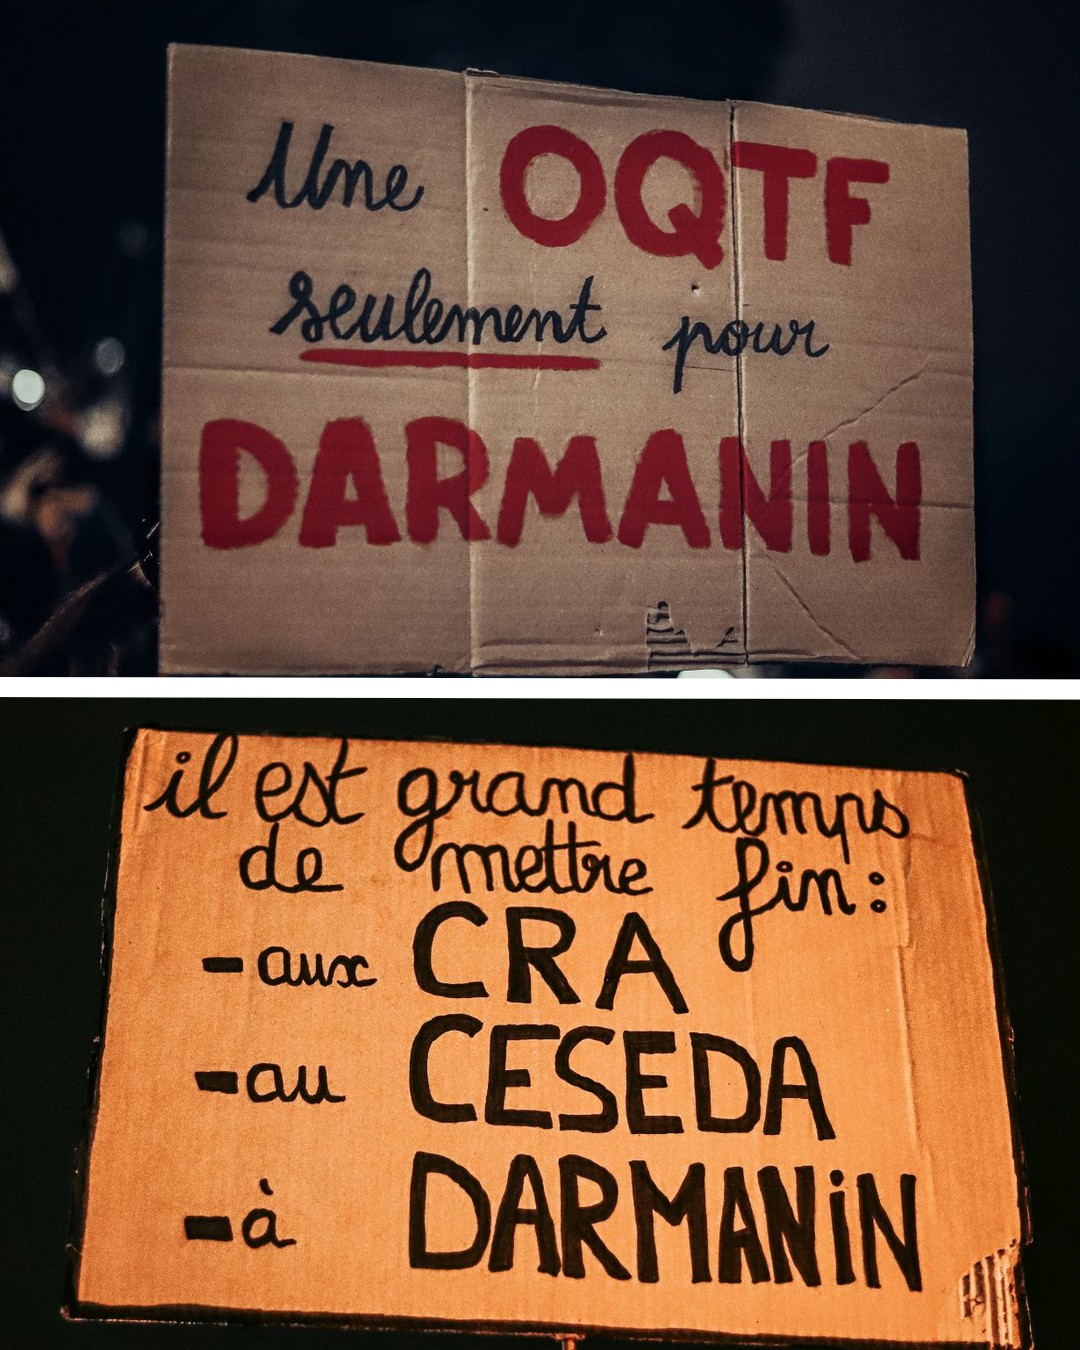 Une OQTF
seulement pour
DARMANIN
il est grand temps
de mettre fin:
-aux CRA
-au CESEDA
-à DARMANiN